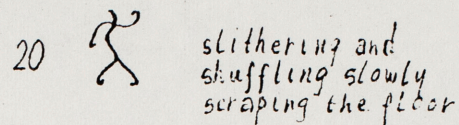 20
slithering and
shuffling slowly
scraping the floor